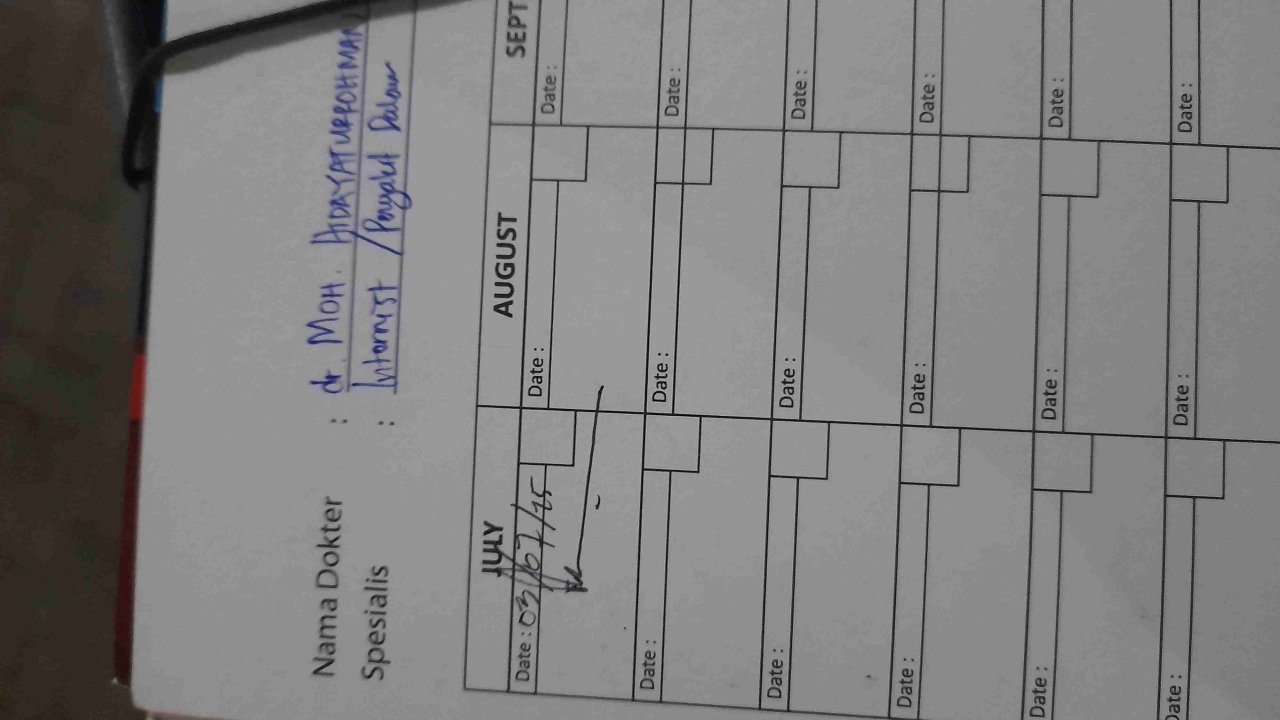 Nama Dokter : dr. MOH. HIDAYATURROHMAN
Spesialis : Internist / Penyakit Dalam
JULY AUGUST SEPT
Date : 03/07/25 Date : Date :
Date : Date : Date :
Date : Date : Date :
Date : Date : Date :
Date : Date : Date :
Date : Date : Date :